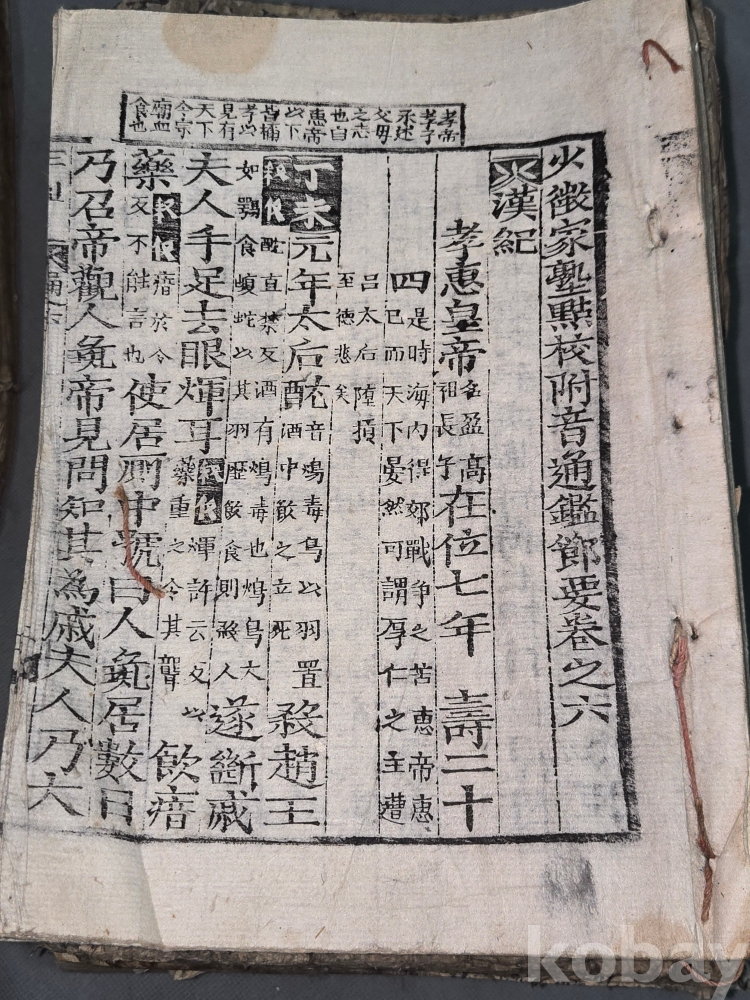 孝帝
孝子
承述
父毋
之志
也自
惠帝
以下
皆稱
孝以
見有
天下
令宗
廟血
食也
少微家塾點校附音通鑑節要卷之六
漢紀
孝惠皇帝名盈高祖長子在位七年 壽二十
四是時海内得郊戰爭之苦惠帝惠
已而天下晏然可謂厚仁之主遭
呂太后墮損
至德悲矣
丁未元年太后酖音鴆毒鳥以羽置酒中飮之立死殺趙王
酖直禁反酒有鴆毒也鴆鳥大
如鶚食蝮蛇以其羽歷飮食則殺人遂斷戚
夫人手足去眼煇耳煇許云反以藥重之令其聾飮瘖
藥瘖於今反不能言也使居厠中號曰人彘居數日
乃召帝觀人彘帝見問知其爲戚夫人乃大
kobay